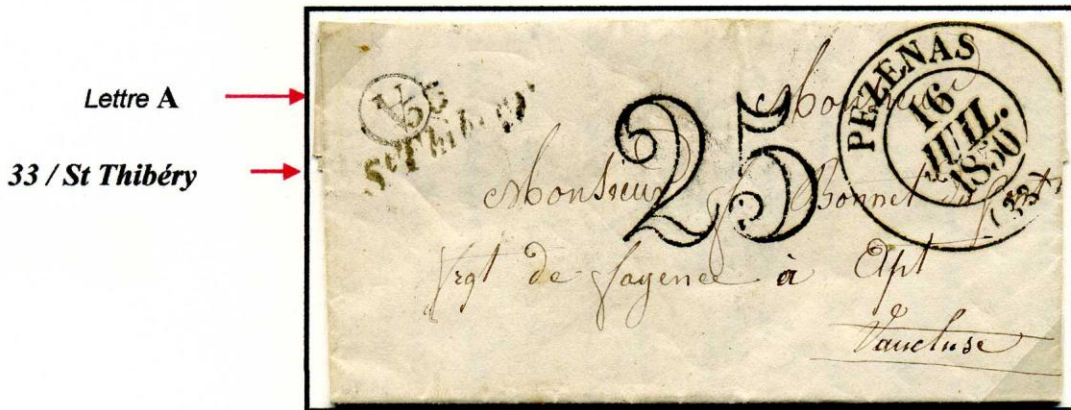 Lettre A
33 / St Thibéry
A
33
St Thibéry
25
PEZENAS
16
JUIL.
1850
(33)
Monsieur
Monsieur Bonnet
frgt de fayence à Apt
Vaucluse